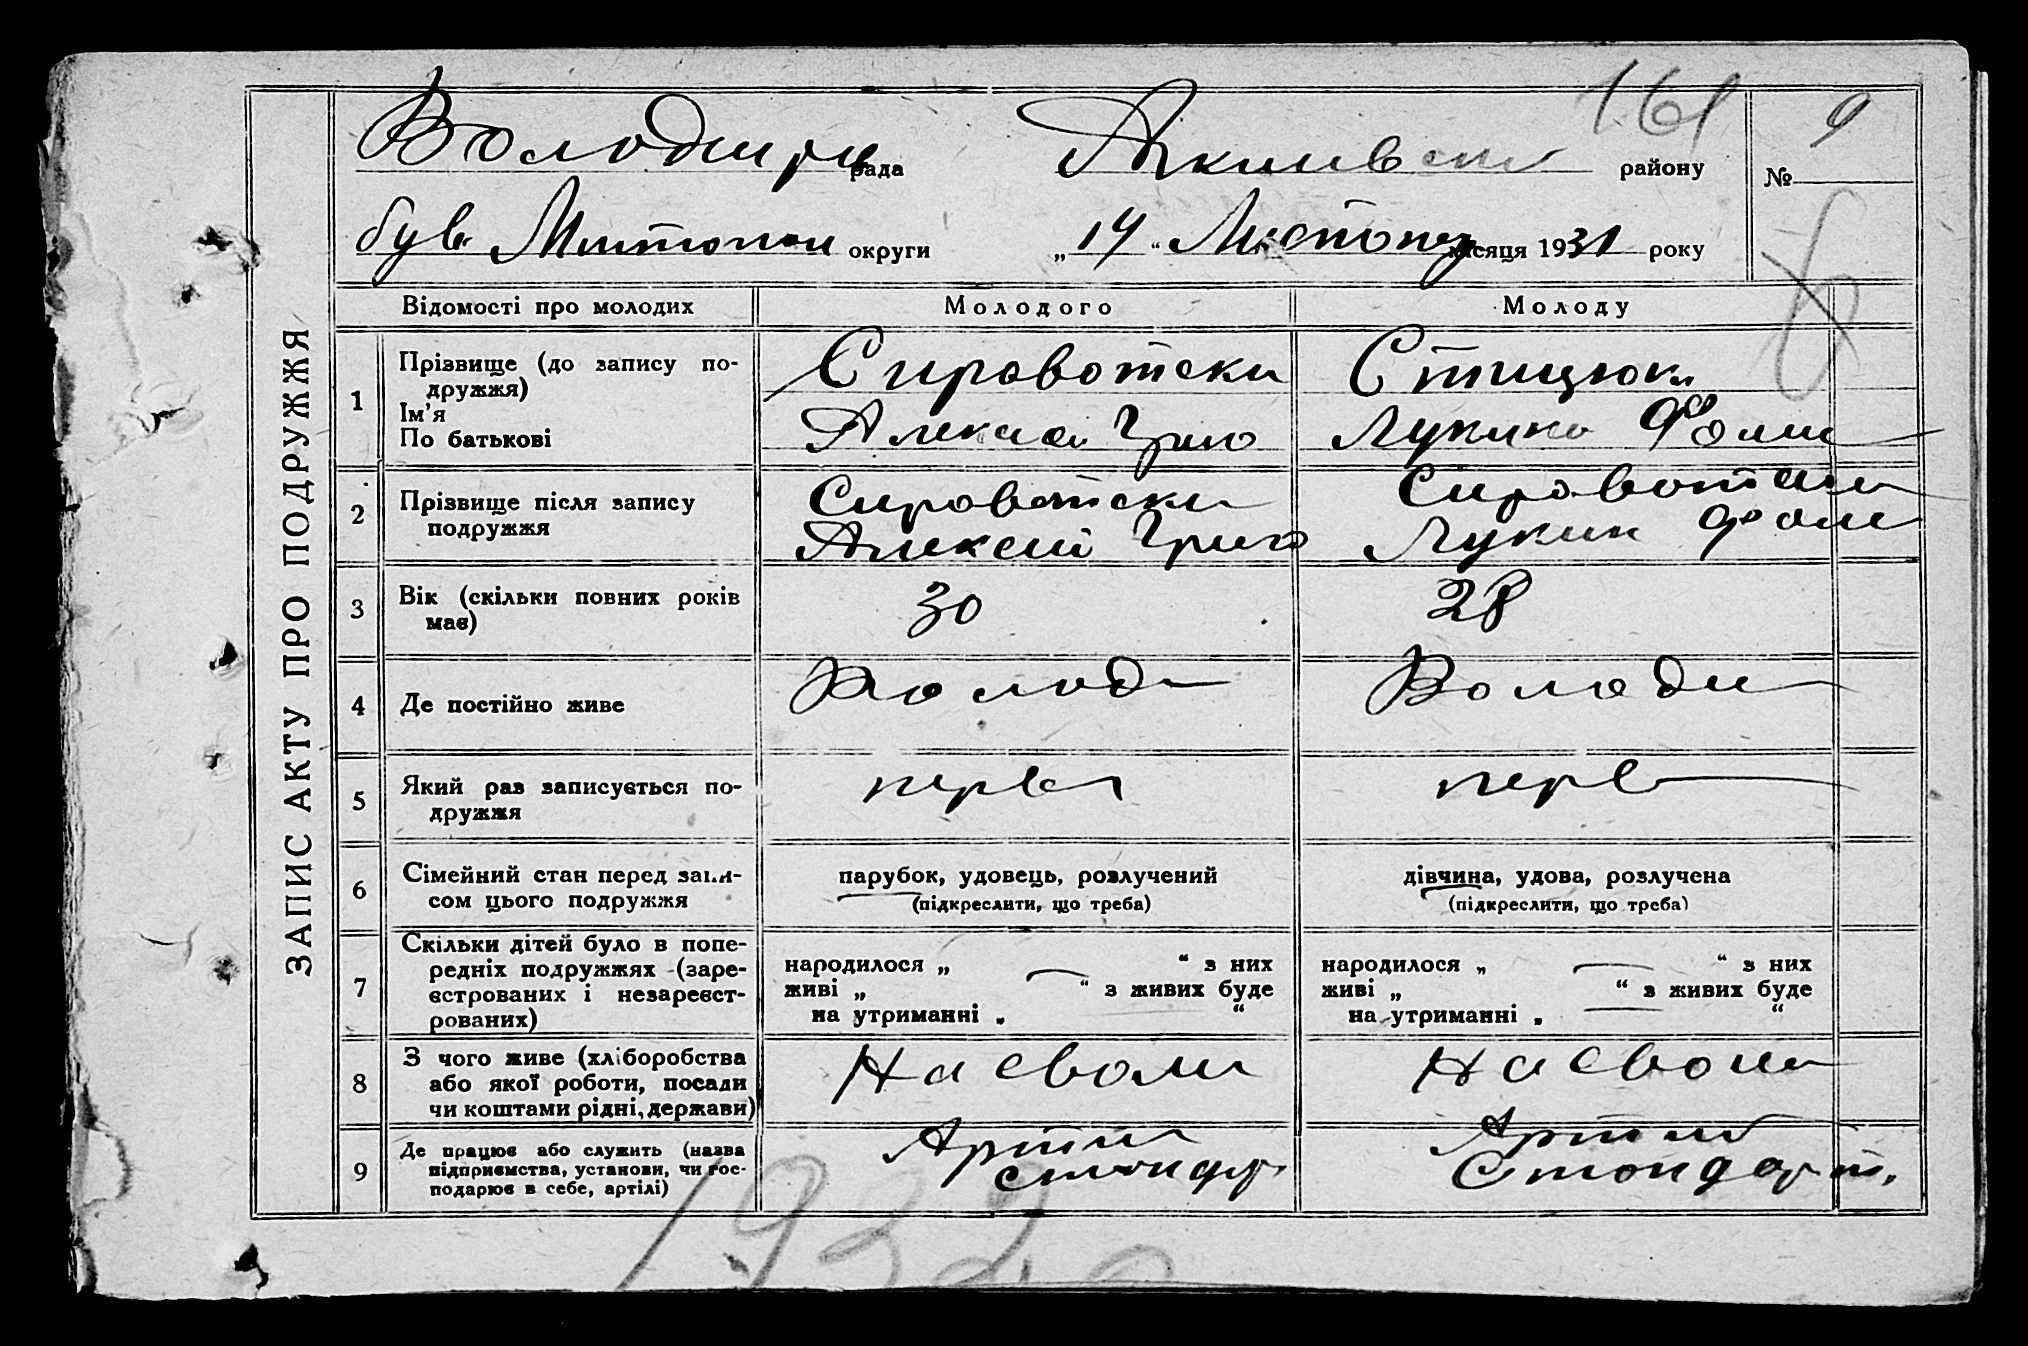 ЗАПИС АКТУ ПРО ПОДРУЖЖЯ
161
Володими рада Якимвски району № 9
був. Митопол округи „14“ Листопад місяця 1931 року
Відомості про молодих Молодого Молоду
1 Прізвище (до запису по-
дружжя)
Ім'я
По батькові
Сироватски
Алексей Григо
Стицюк
Лукия Фоми
2 Прізвище після запису
подружжя
Сироватски
Алексей Григо
Сироватски
Лукия Фоми
3 Вік (скільки повних років
має)
30
28
4 Де постійно живе
Володи
Володи
5 Який раз записується по-
дружжя
перви
перв
6 Сімейний стан перед запи-
сом цього подружжя
парубок, удовець, розлучений
(підкреслити, що треба)
дівчина, удова, розлучена
(підкреслити, що треба)
7 Скільки дітей було в попе-
редніх подружжях (заре-
єстрованих і незареєст-
рованих)
народилося „ “ з них
живі „ “ з живих буде
на утриманні „ “
народилося „ “ з них
живі „ “ з живих буде
на утриманні „ “
8 З чого живе (хліборобства
або якої роботи, посади
чи коштами рідні, держави)
На своли
На свои
9 Де працює або служить (назва
підприємства, установи, чи гос-
подарює в себе, артілі)
Артил
стандар
Артил
Стандарт.
1932